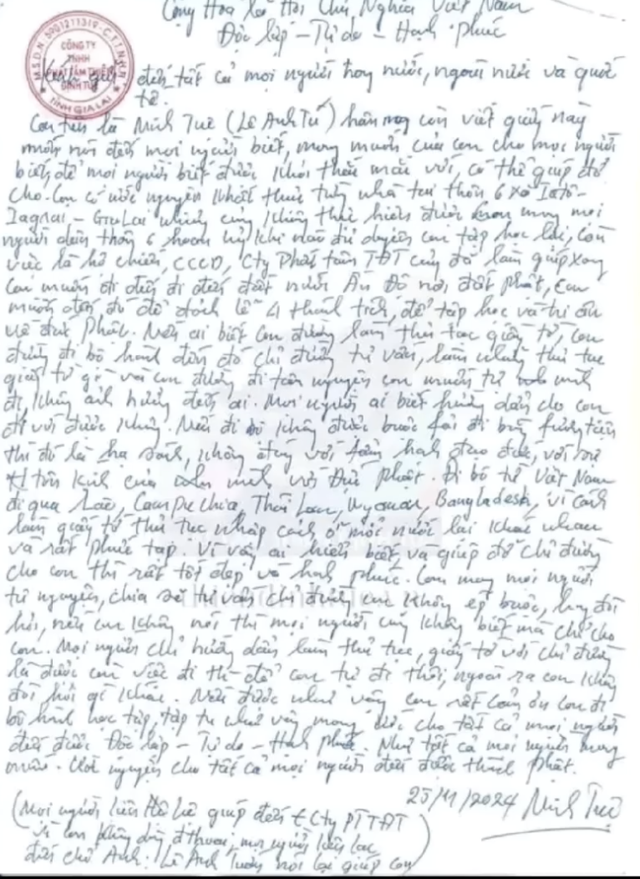 Cộng Hòa Xã Hội Chủ Nghĩa Việt Nam
Độc lập – Tự do – Hạnh phúc
M.S.D.N: 5901211319 - C.T.T.N.H.H
CÔNG TY
TNHH
ĐINH TÚ
TỈNH GIA LAI
Kính gửi đến tất cả mọi người trong nước, ngoài nước và quốc
tế.
Con tên là Minh Tuệ (Lê Anh Tú) hôm nay con viết giấy này
muốn nói đến mọi người biết, mong muốn của con cho mọi người
biết, để mọi người biết được khỏi thắc mắc với, có thể giúp đỡ
cho. Con có ước nguyện khất thực từng nhà tại thôn 6 xã Iatô-
Iagrai – Gia Lai nhưng cũng không thực hiện được mong mọi
người dân thôn 6 hoan hỷ khi nào đủ duyên con tập học lại, còn
việc là hộ chiếu, CCCD, Cty Phát tâm TĐT cũng đã làm giúp xong
con muốn đi đến đi đến đất nước Ấn Độ nơi đất phật, con
muốn đến đó để đảnh lễ 4 thánh tích, để tập học và tri ân
về đức Phật. Nếu ai biết con đường làm thủ tục giấy tờ con
đường đi bộ hành đến đó chỉ đường tư vấn, làm những thủ tục
giấy tờ gì và con đường đi tâm nguyện con muốn tự mình
đi, không ảnh hưởng đến ai. Mọi người ai biết hướng dẫn cho con
đi với được không. Nếu đi bộ không được bước phải đi bằng phương tiện
thì đó là hạ sách, không đúng với tâm hạnh đạo đức, với sự
tôn kính của mình với Đức Phật. Đi bộ từ Việt Nam
đi qua Lào, Campuchia, Thái Lan, Myanmar, Bangladesh, vì cách
làm giấy tờ thủ tục nhập cảnh ở mỗi nước lại khác nhau
và rất phức tạp. Vì vậy ai hiểu biết và giúp đỡ chỉ đường
cho con thì rất tốt đẹp và hạnh phúc. Con mong mọi người
tự nguyện, chia sẻ tư vấn chỉ đường con không ép buộc, hay đòi
hỏi, nếu con không nói thì mọi người cũng không biết mà chỉ cho
con. Mọi người chỉ hướng dẫn làm thủ tục, giấy tờ với chỉ đường
là được còn việc đi thì để con tự đi thôi, ngoài ra con không
đòi hỏi gì khác. Nếu được như vậy con rất cảm ơn con đi
bộ hành học tập, tập tu như vậy mong ước cho tất cả mọi người
đến được Độc lập – Tự do – Hạnh phúc. Như tất cả mọi người mong
muốn. Ước nguyện cho tất cả mọi người đến được thành phật.
25/11/2024 Minh Tuệ
(Mọi người liên hệ giúp đến Cty PTTĐT
vì con không dùng điện thoại, mọi người liên lạc
đến chỗ Anh: Lê Anh Tuấn nói lại giúp con)